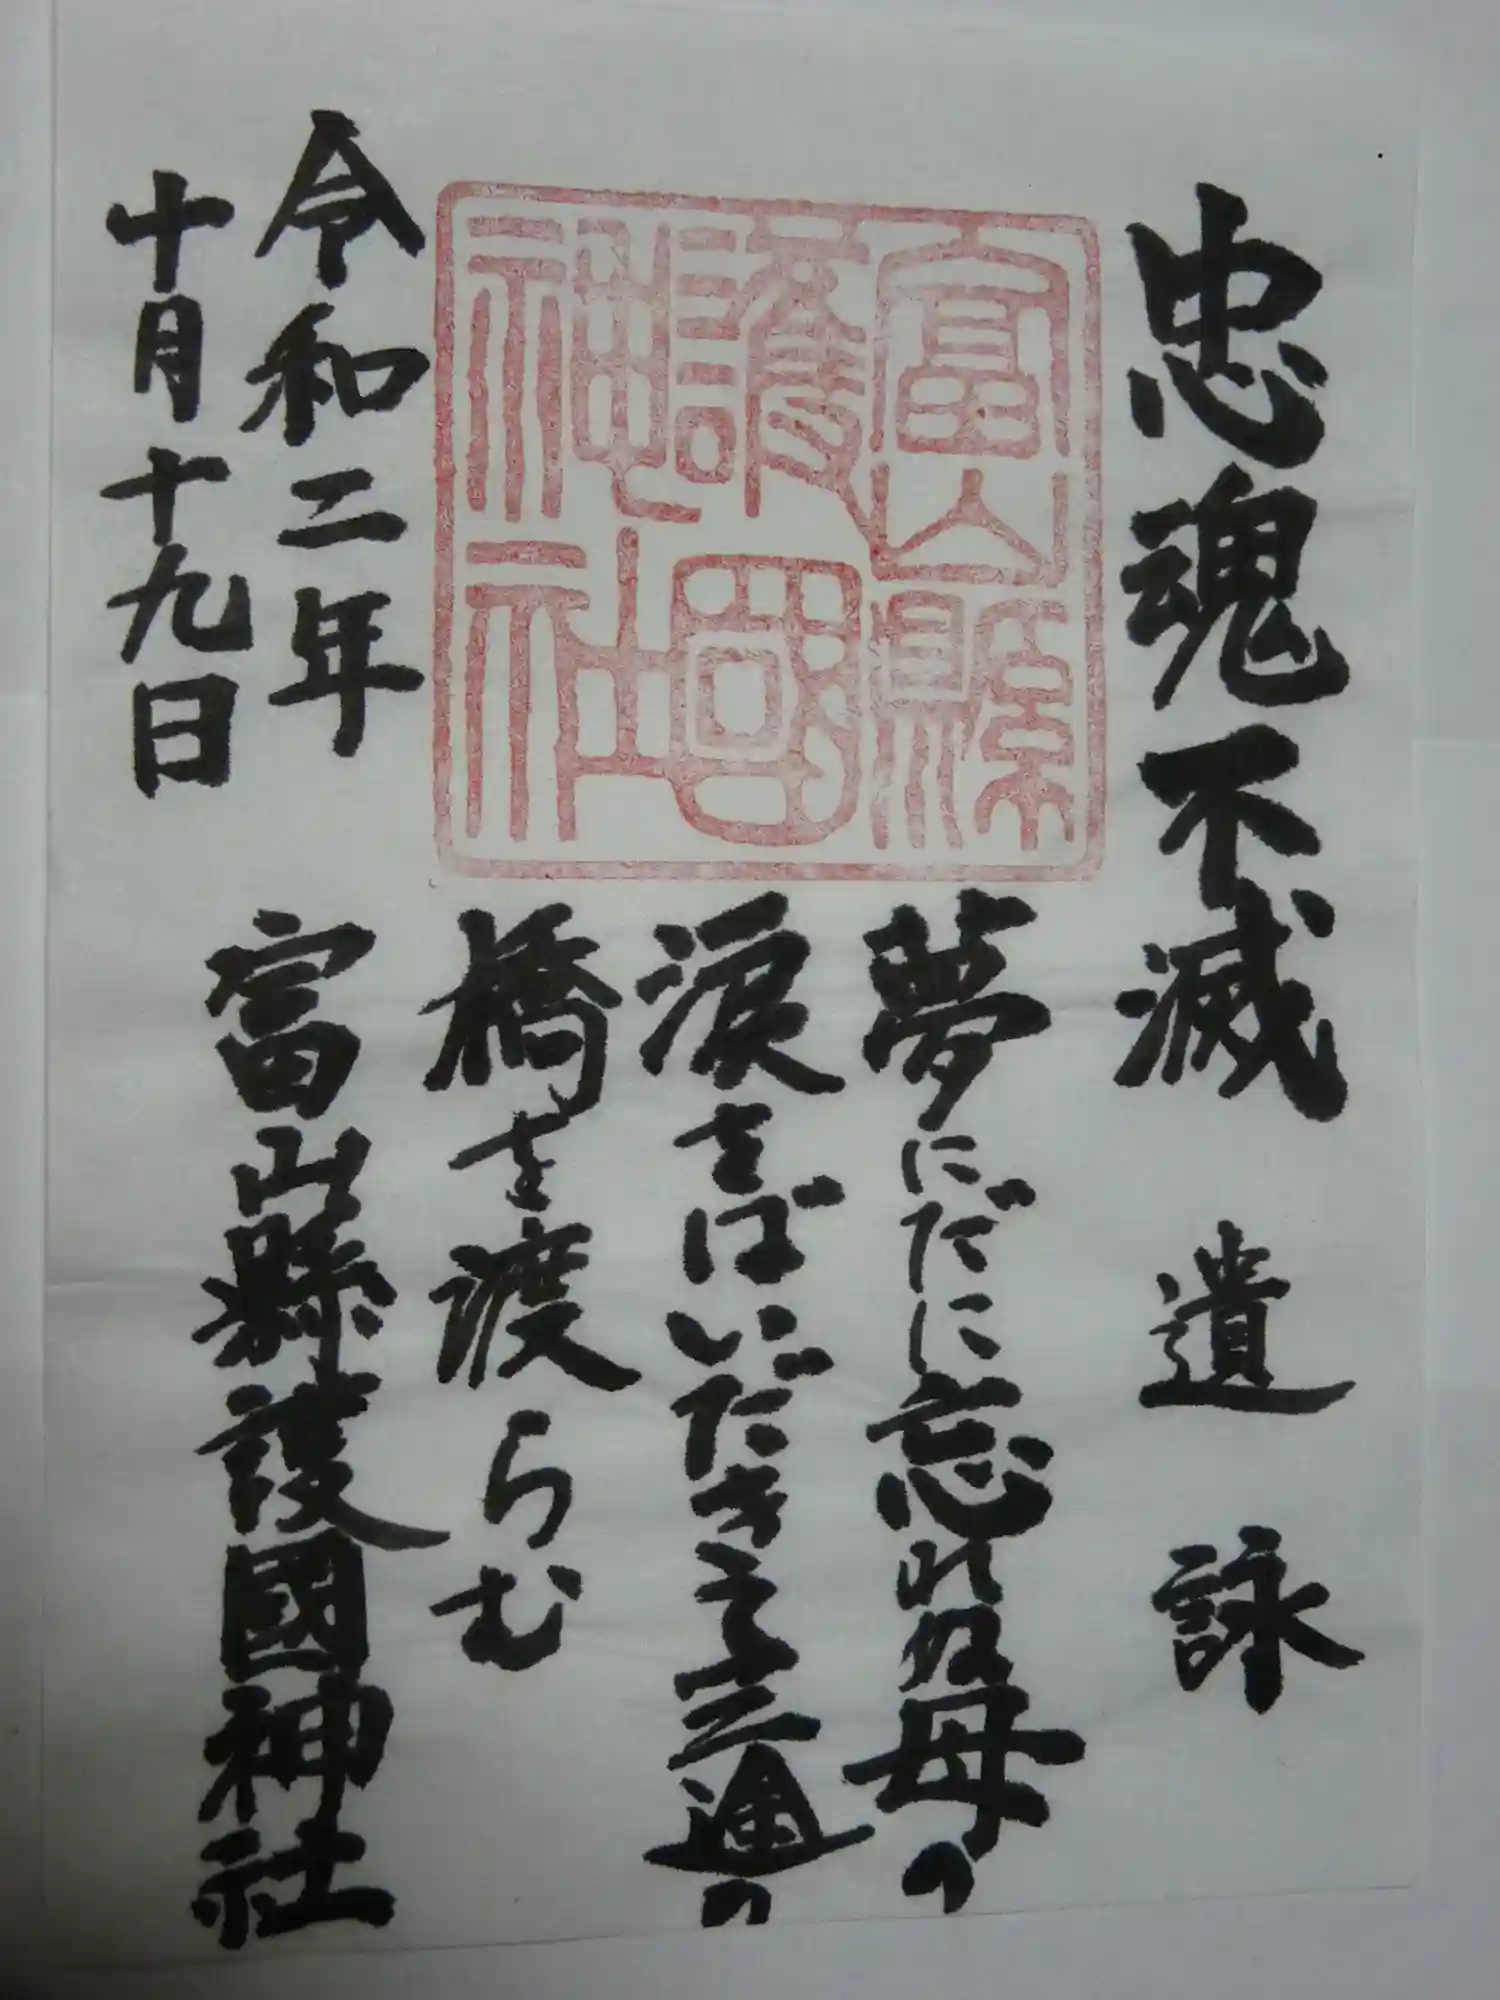 忠魂不滅 遺詠
富山縣
護國
神社
夢にだに忘れぬ母の
涙をばいだきて三途の
橋を渡らむ
令和二年
十月十九日
富山縣護國神社